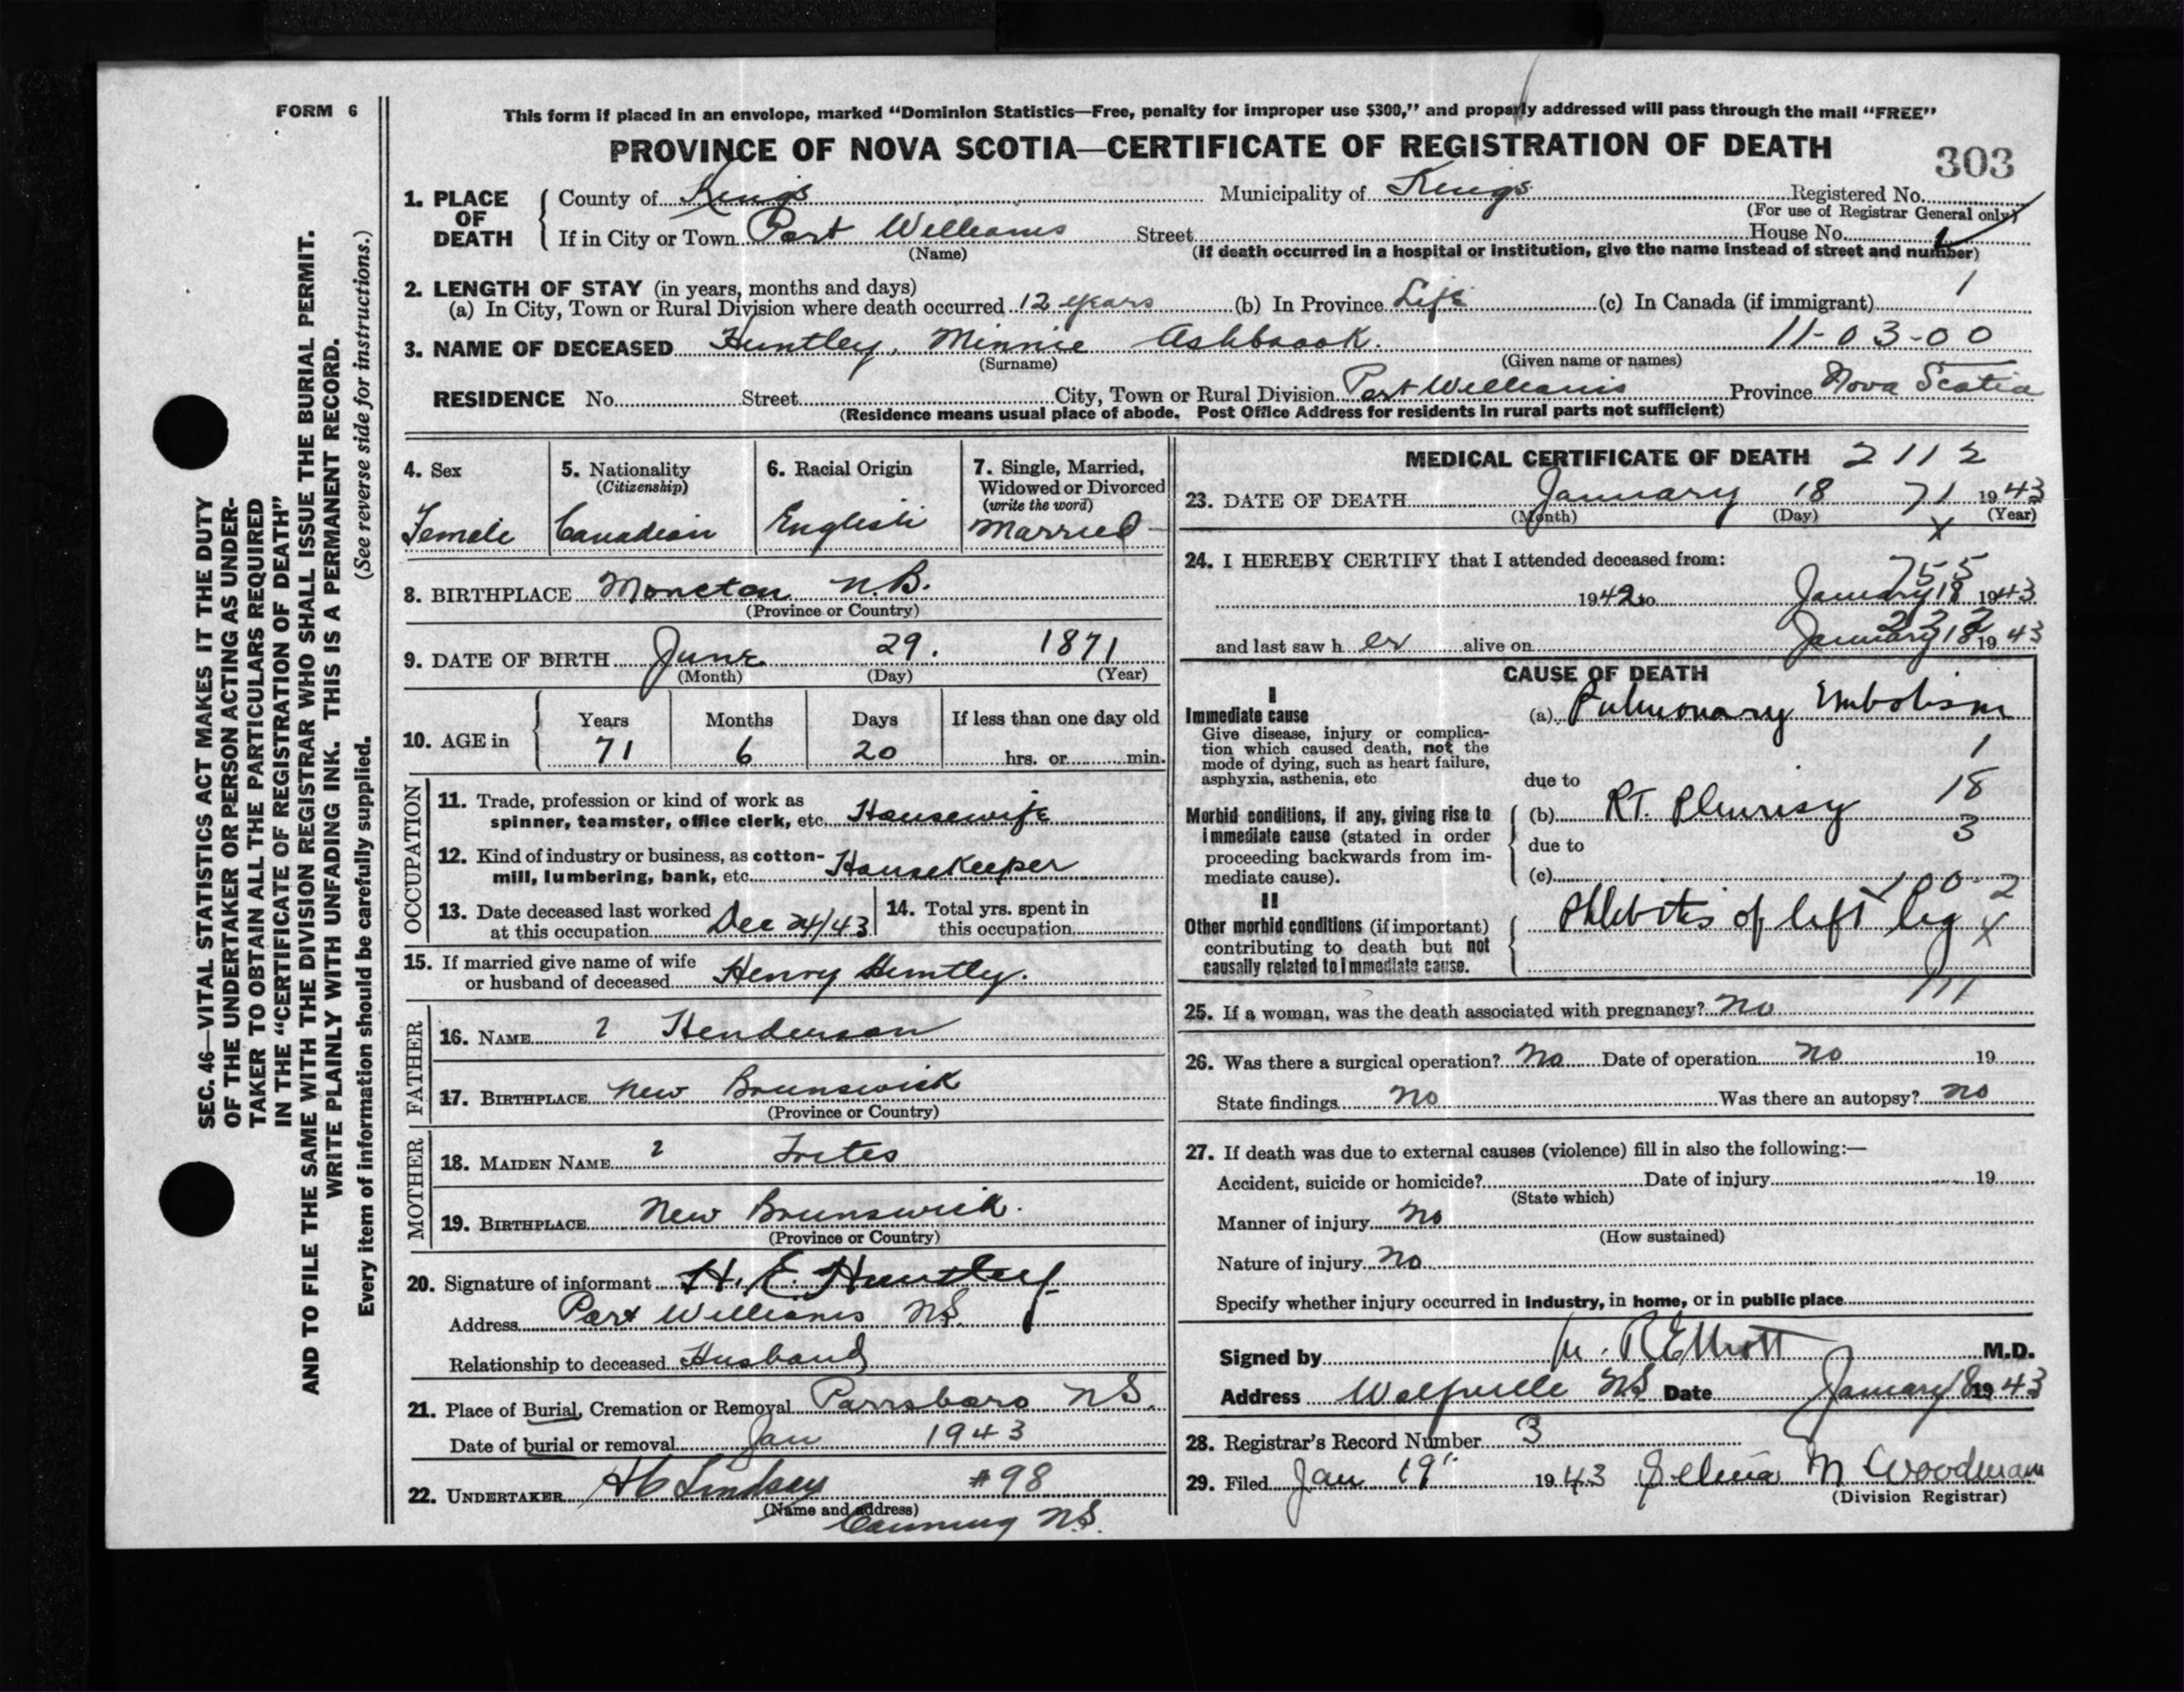 FORM 6
This form if placed in an envelope, marked "Dominion Statistics—Free, penalty for improper use $300," and properly addressed will pass through the mail "FREE"
PROVINCE OF NOVA SCOTIA—CERTIFICATE OF REGISTRATION OF DEATH
303
1. PLACE OF DEATH
County of Kings Municipality of Kings Registered No.
(For use of Registrar General only)
If in City or Town Port Williams Street House No.
(Name) (If death occurred in a hospital or institution, give the name instead of street and number)
2. LENGTH OF STAY (in years, months and days)
1
(a) In City, Town or Rural Division where death occurred 12 years (b) In Province Life (c) In Canada (if immigrant)
3. NAME OF DECEASED Huntley, Minnie Ashbrook. 11-03-00
(Surname) (Given name or names)
RESIDENCE No. Street City, Town or Rural Division Port Williams Province Nova Scotia
(Residence means usual place of abode. Post Office Address for residents in rural parts not sufficient)
4. Sex
Female
5. Nationality
(Citizenship)
Canadian
6. Racial Origin
English
7. Single, Married, Widowed or Divorced
(write the word)
Married
8. BIRTHPLACE Moncton N.B.
(Province or Country)
9. DATE OF BIRTH June 29. 1871
(Month) (Day) (Year)
10. AGE in
Years Months Days If less than one day old
71 6 20 hrs. or min.
OCCUPATION
11. Trade, profession or kind of work as
spinner, teamster, office clerk, etc. Housewife
12. Kind of industry or business, as cotton-
mill, lumbering, bank, etc. Housekeeper
13. Date deceased last worked
at this occupation Dec 24/43
14. Total yrs. spent in
this occupation
15. If married give name of wife
or husband of deceased Henry Huntley.
FATHER
16. NAME ? Henderson
17. BIRTHPLACE New Brunswick
(Province or Country)
MOTHER
18. MAIDEN NAME ? Trites
19. BIRTHPLACE New Brunswick.
(Province or Country)
20. Signature of informant H. E. Huntley
Address Port Williams NS.
Relationship to deceased Husband
21. Place of Burial, Cremation or Removal Parrsboro NS.
Date of burial or removal Jan 1943
22. UNDERTAKER H C Lindsay #98
(Name and address)
Canning NS.
MEDICAL CERTIFICATE OF DEATH 2112
23. DATE OF DEATH January 18 71 1943
(Month) (Day) (Year)
X
24. I HEREBY CERTIFY that I attended deceased from:
755
1942 to January 18 1943
and last saw h er alive on January 18 1943
CAUSE OF DEATH
I
Immediate cause
Give disease, injury or complica-
tion which caused death, not the
mode of dying, such as heart failure,
asphyxia, asthenia, etc
(a) Pulmonary Embolism
1
due to
18
Morbid conditions, if any, giving rise to
immediate cause (stated in order
proceeding backwards from im-
mediate cause).
(b) RT. Pleurisy
3
due to
(c)
100-2
II
Other morbid conditions (if important)
contributing to death but not
causally related to immediate cause.
Phlebitis of left leg X
25. If a woman, was the death associated with pregnancy? no
26. Was there a surgical operation? No Date of operation no 19
State findings no Was there an autopsy? no
27. If death was due to external causes (violence) fill in also the following:—
Accident, suicide or homicide? Date of injury 19
(State which)
Manner of injury no
(How sustained)
Nature of injury no
Specify whether injury occurred in industry, in home, or in public place
Signed by R Elliott M.D.
Address Wolfville NS Date January 18 1943
28. Registrar's Record Number 3
29. Filed Jan 19" 1943 Selena M Woodman
(Division Registrar)
SEC. 46—VITAL STATISTICS ACT MAKES IT THE DUTY
OF THE UNDERTAKER OR PERSON ACTING AS UNDER-
TAKER TO OBTAIN ALL THE PARTICULARS REQUIRED
IN THE "CERTIFICATE OF REGISTRATION OF DEATH"
AND TO FILE THE SAME WITH THE DIVISION REGISTRAR WHO SHALL ISSUE THE BURIAL PERMIT.
WRITE PLAINLY WITH UNFADING INK. THIS IS A PERMANENT RECORD.
Every item of information should be carefully supplied. (See reverse side for instructions.)